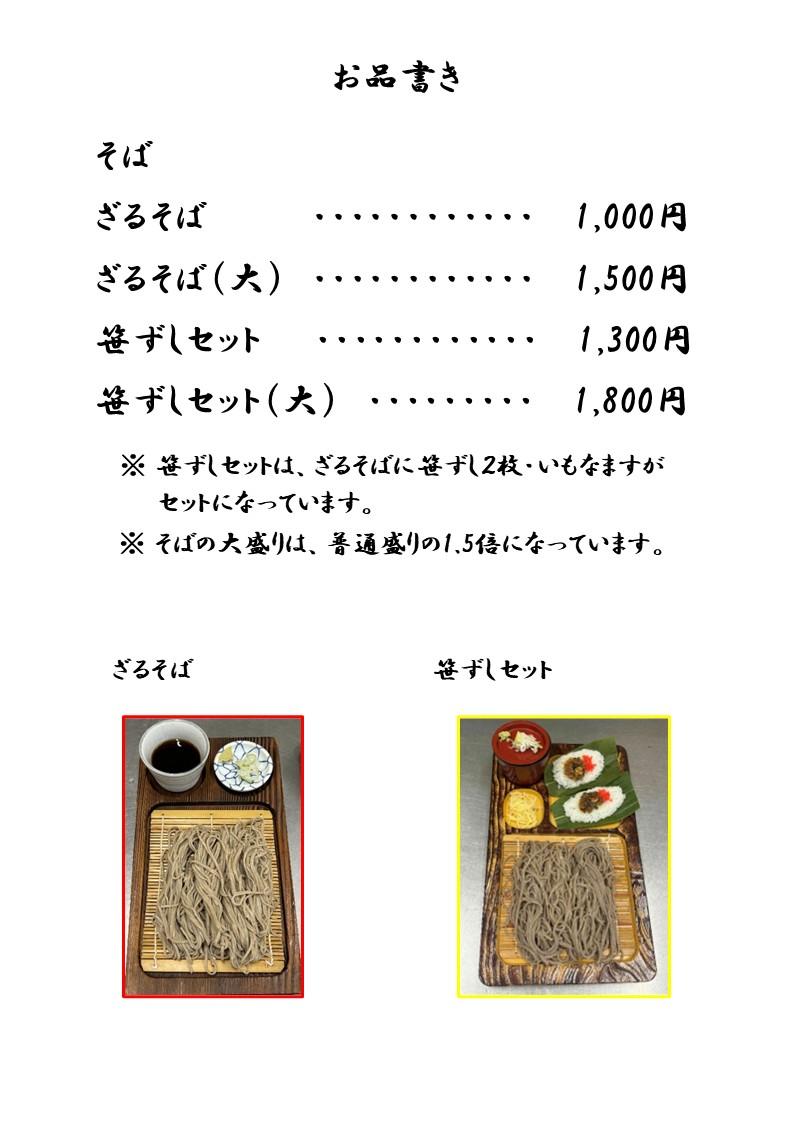 お品書き
そば
ざるそば ・・・・・・・・・・・・ 1,000円
ざるそば(大) ・・・・・・・・・・・・ 1,500円
笹ずしセット ・・・・・・・・・・・・ 1,300円
笹ずしセット(大) ・・・・・・・・・ 1,800円
※ 笹ずしセットは、ざるそばに笹ずし2枚・いもなますが
セットになっています。
※ そばの大盛りは、普通盛りの1.5倍になっています。
ざるそば 笹ずしセット